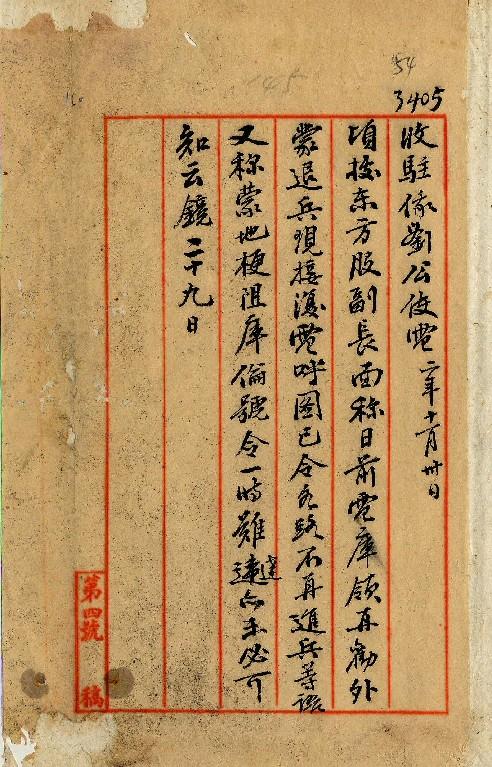 54
3405
收駐俄劉公使電 二年十一月卅日
頃据东方股副長面称日前電庫領再勸外
蒙退兵現接復電呼圖已令各路不再進兵等語
又称蒙地梗阻庫倫號令一時难速達亦未必可
知云鏡 二十九日
第四號 稿